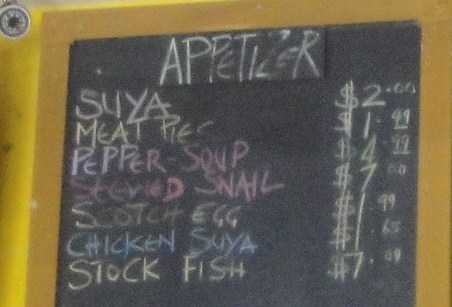 APPETIZER
SUYA $2.00
MEAT PIE $1.99
PEPPER-SOUP $4.99
STEEWED SNAIL $7.00
SCOTCH EGG $1.99
CHICKEN SUYA $1.65
STOCK FISH $7.09